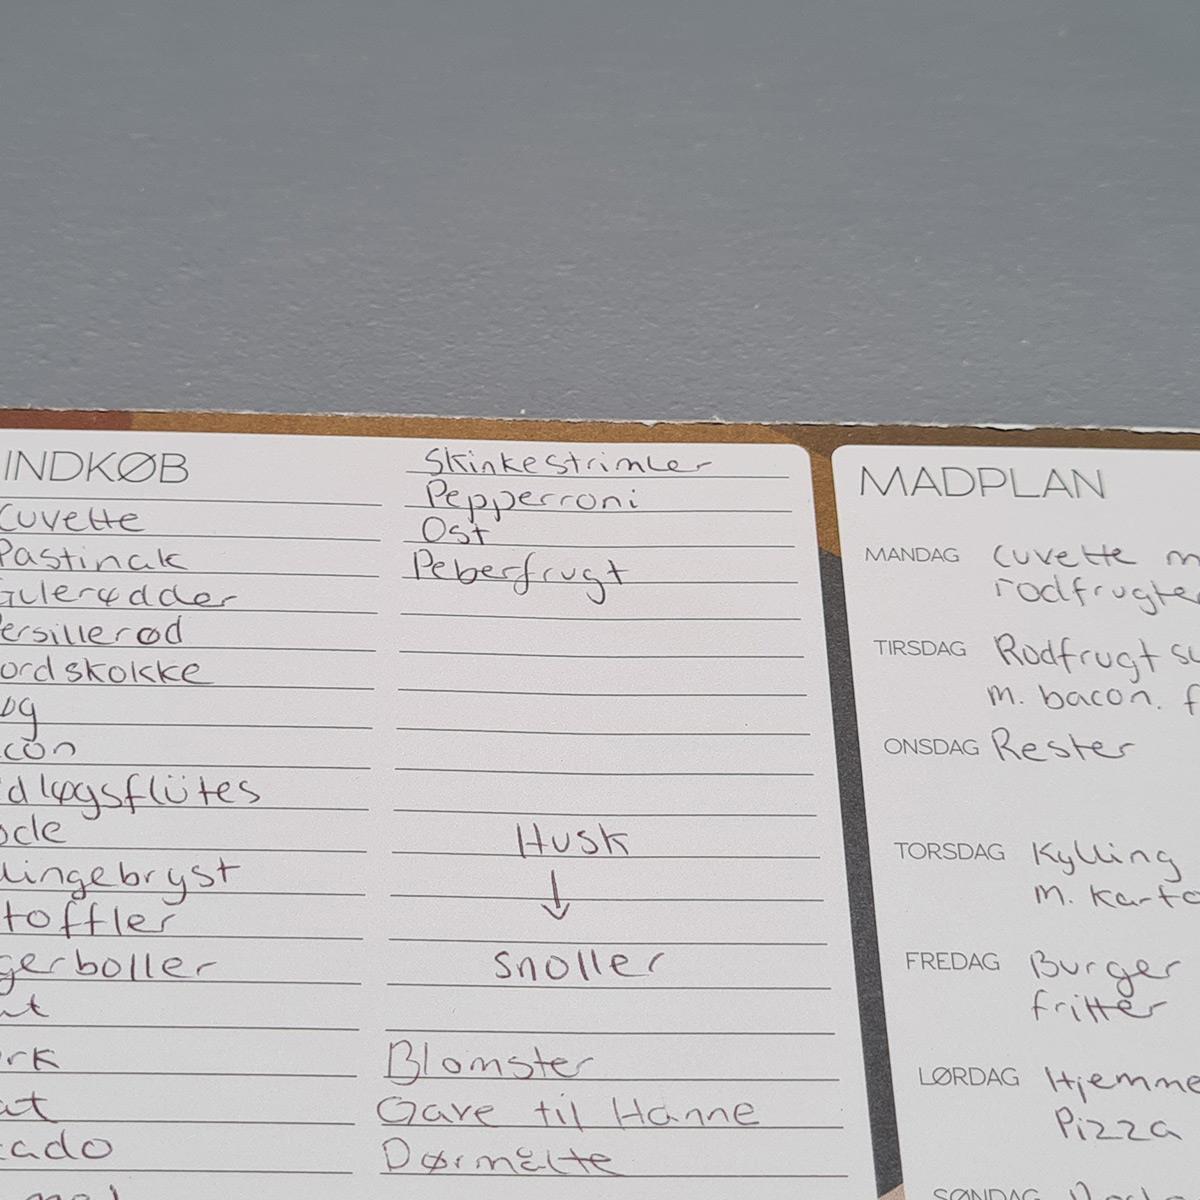 INDKØB
Cuvette
Pastinak
Gulerødder
Persillerød
ordskokke
øg
con
dløgsflûtes
ode
lingebryst
toffler
gerboller
rk
at
cado
Skinkestrimler
Pepperroni
Ost
Peberfrugt
Husk
↓
snoller
Blomster
Gave til Hanne
Dørmåtte
MADPLAN
MANDAG Cuvette m
rodfrugter
TIRSDAG Rodfrugt su
m. bacon. f
ONSDAG Rester
TORSDAG Kylling
m. karto
FREDAG Burger
fritter
LØRDAG Hjemme
Pizza
SØNDAG